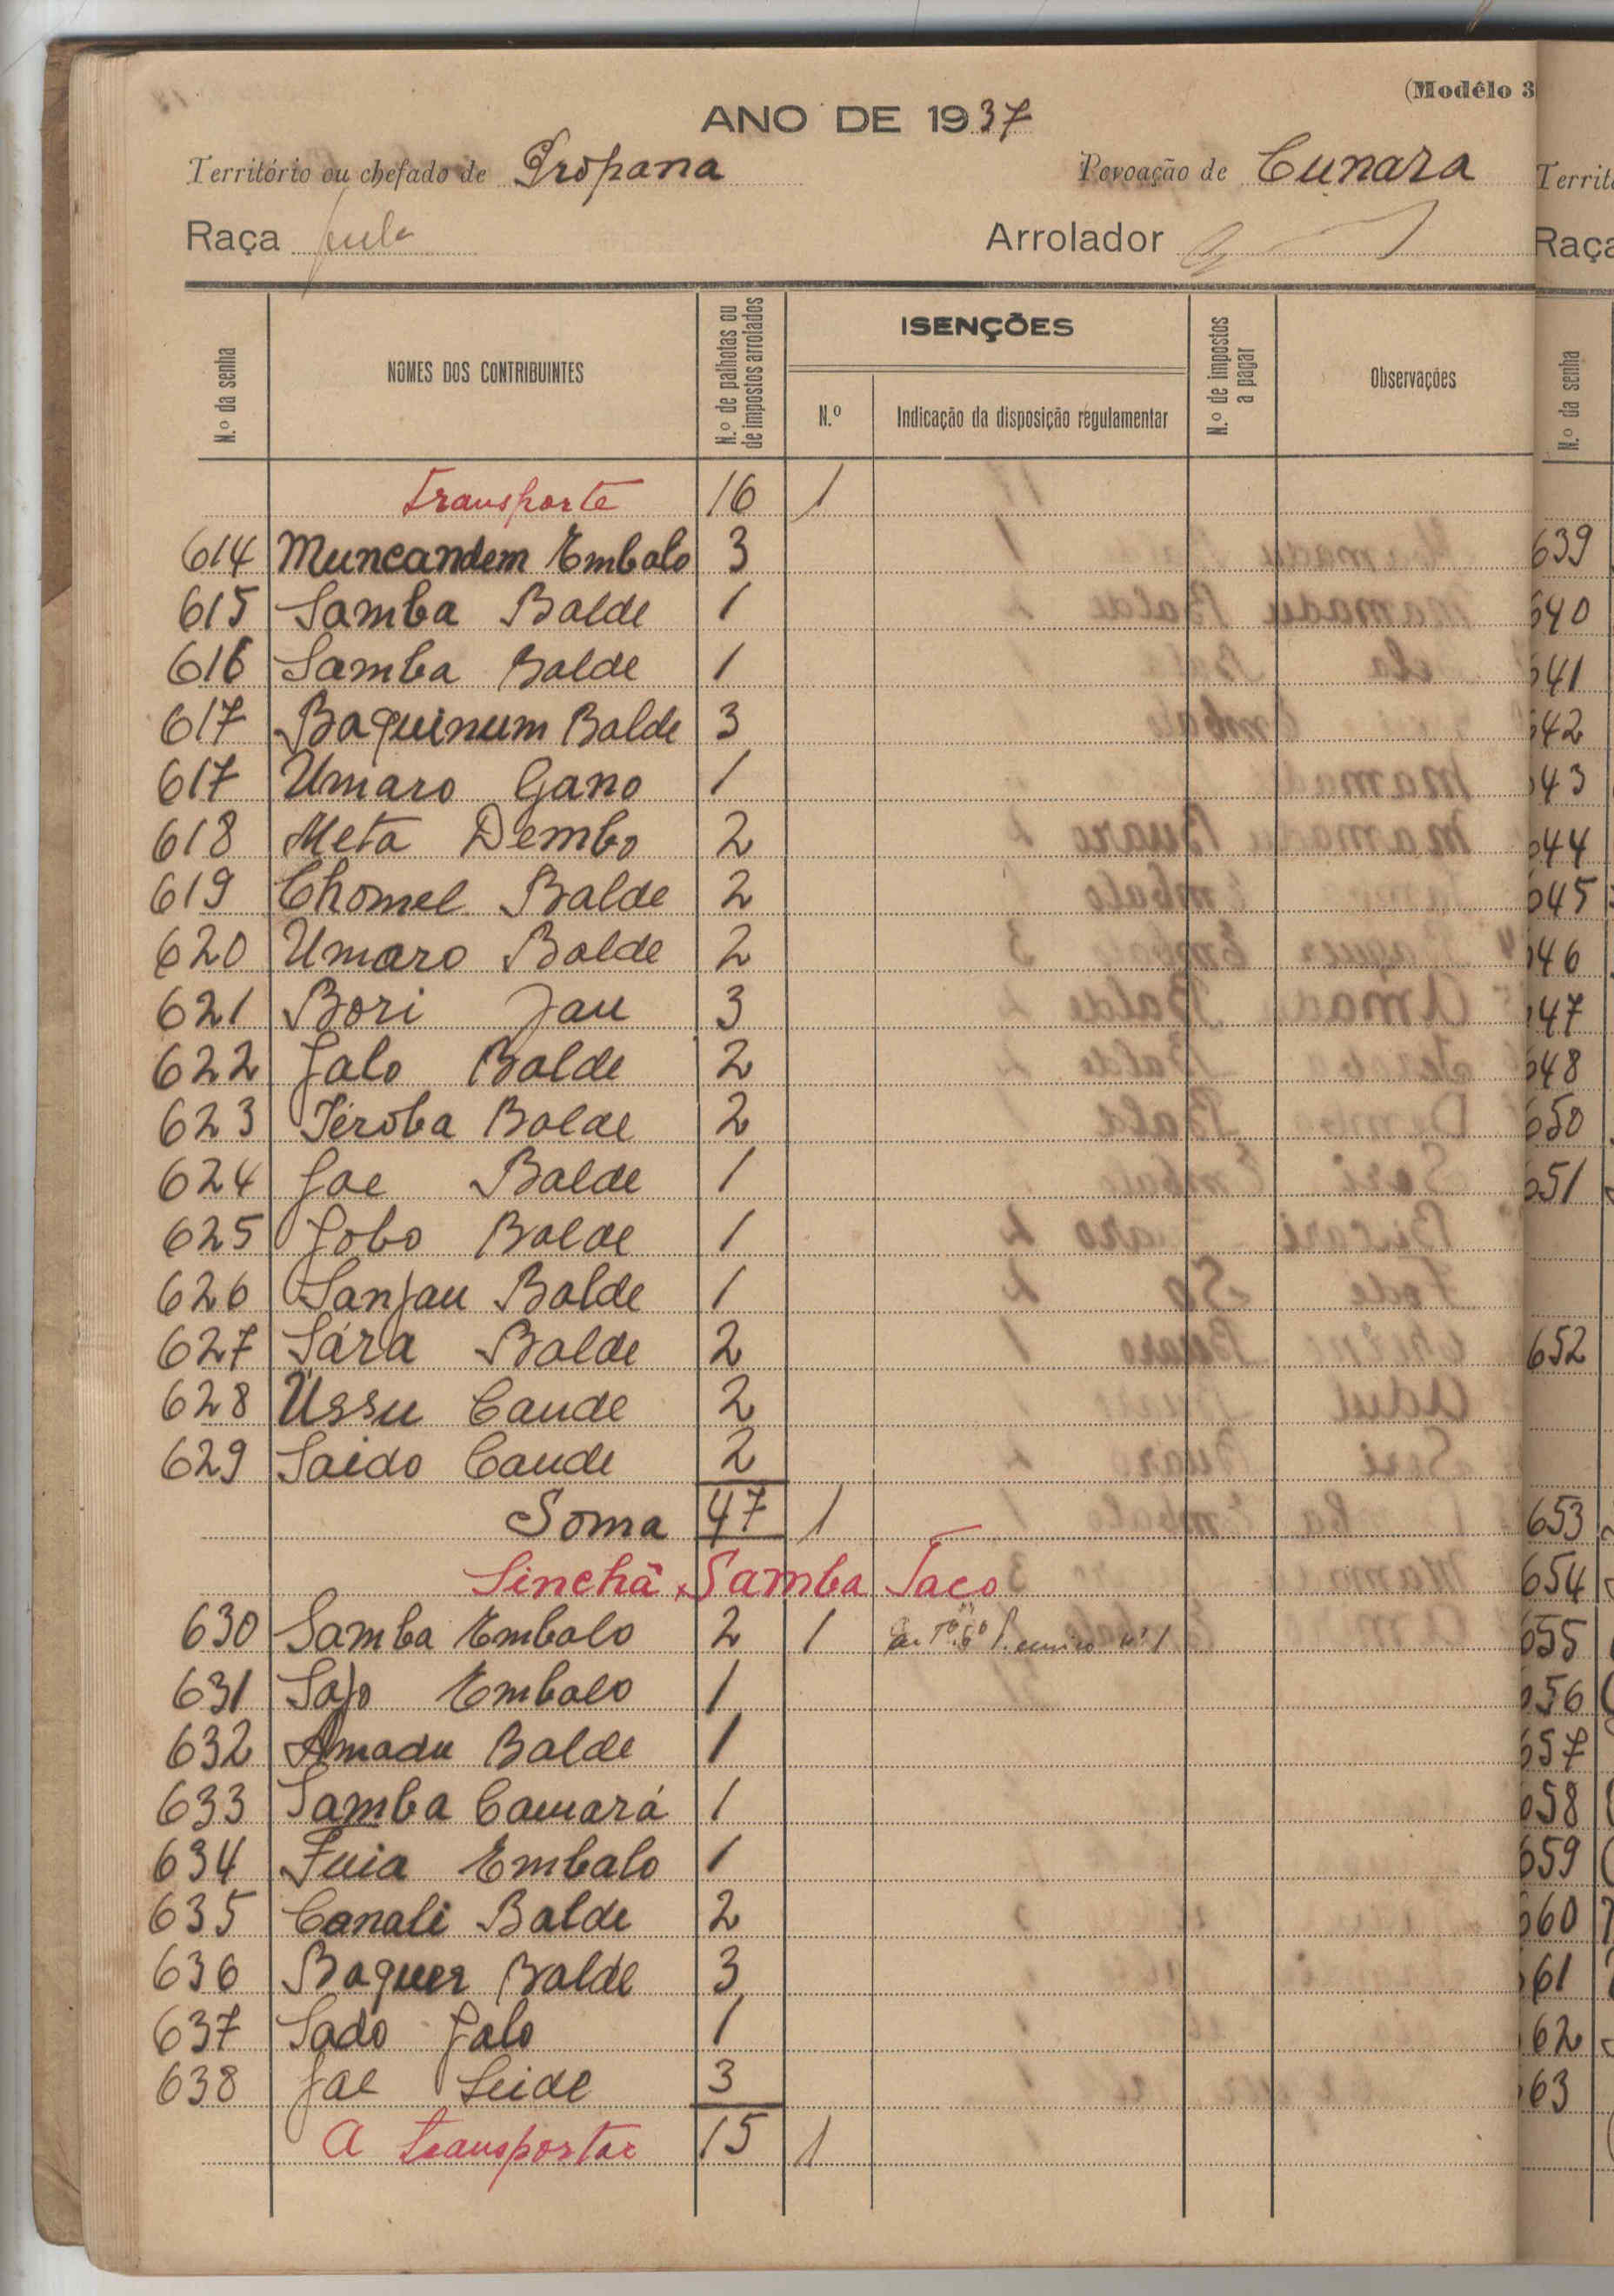 (Modêlo 3
ANO DE 1937
Território ou chefado de Propana Povoação de Cunara
Raça fula Arrolador
N.º da senha
NOMES DOS CONTRIBUINTES
N.º de palhotas ou de impostos arrolados
ISENÇÕES
N.º
Indicação da disposição regulamentar
N.º de impostos a pagar
Observações
Transporte 16 1
614 Muncandem Embalo 3
615 Samba Balde 1
616 Samba Balde 1
617 Baquinum Balde 3
617 Umaro Gano 1
618 Meta Dembo 2
619 Chomel Balde 2
620 Umaro Balde 2
621 Bori Jau 3
622 Jalo Balde 2
623 Téroba Balde 2
624 Jae Balde 1
625 Jobo Balde 1
626 Sanjau Balde 1
627 Sára Balde 2
628 Ussu Cande 2
629 Saido Cande 2
Soma 47 1
Sinchã Samba Taco
630 Samba Embalo 2 1 nº 1
631 Sajo Embalo 1
632 Amadu Balde 1
633 Samba Camará 1
634 Fuia Embalo 1
635 Canali Balde 2
636 Baquer Balde 3
637 Sado Jalo 1
638 Jae Seide 3
A transportar 15 1
Territó
Raça
N.º da senha
639
640
641
642
643
644
645
646
647
648
650
651
652
653
654
655
656
657
658
659
660
661
662
663